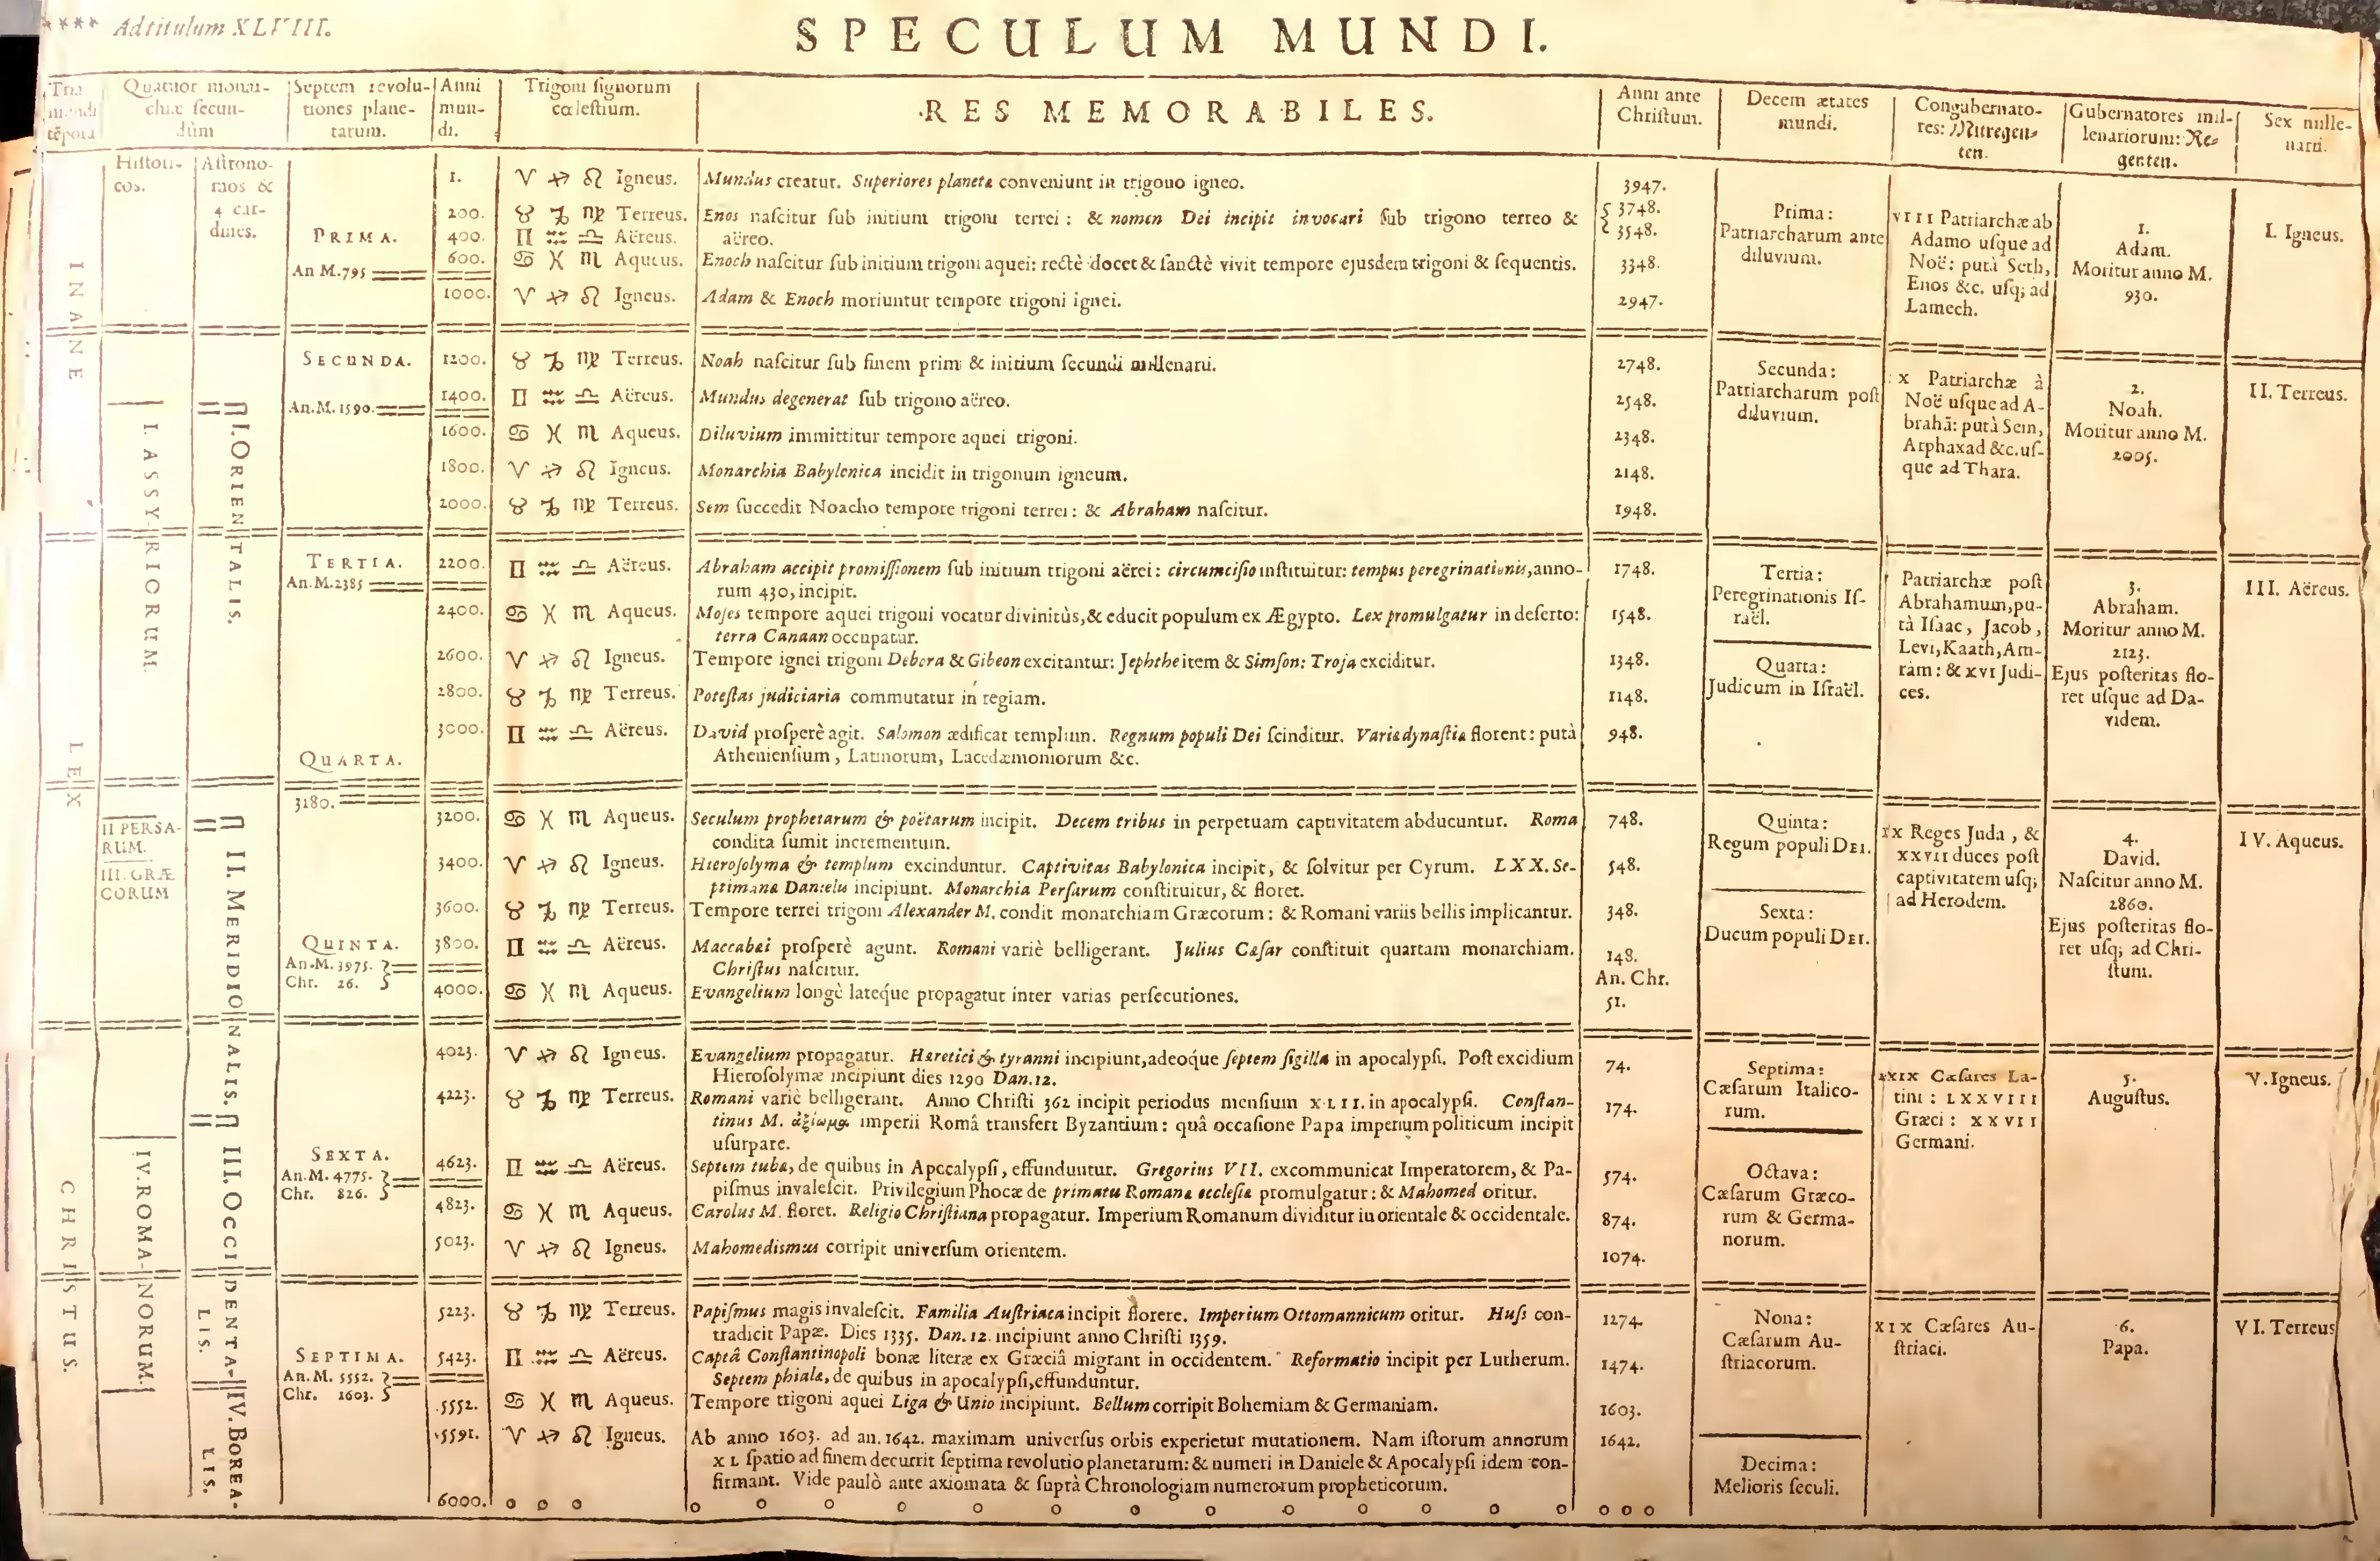 **** Ad titulum XLVIII.
SPECULUM MUNDI.
Tria mundi tēpora
Quatuor monar-
chiæ secun-
dùm
Septem revolu-
tiones plane-
tarum.
Anni
mun-
di.
Trigoni signorum
cœlestium.
RES MEMORABILES.
Anni ante
Christum.
Decem ætates
mundi.
Congubernato-
res: Mitregen-
ten.
Gubernatores mil-
lenariorum: Re-
genten.
Sex mille-
narii.
Histori-
cos.
Astrono-
mos &
4 car-
dines.
INANE
LEX
CHRISTUS.
I. ASSYRIORUM
II PERSA-
RUM.
III. GRÆ
CORUM
IV. ROMANORUM.
I. ORIENTALIS.
II. MERIDIONALIS.
III. OCCIDENTA-
LIS.
IV. BOREA-
LIS.
PRIMA.
An M. 795
1. ♈ ♐ ♌ Igneus. Mundus creatur. Superiores planetæ conveniunt in trigono igneo. 3947.
200. ♉ ♑ ♍ Terreus. Enos nascitur sub initium trigoni terrei: & nomen Dei incipit invocari sub trigono terreo & 3748.
400. ♊ ♒ ♎ Aëreus. aëreo. 3548.
600. ♋ ♓ ♏ Aqueus. Enoch nascitur sub initium trigoni aquei: rectè docet & sanctè vivit tempore ejusdem trigoni & sequentis. 3348.
1000. ♈ ♐ ♌ Igneus. Adam & Enoch moriuntur tempore trigoni ignei. 2947.
Prima:
Patriarcharum ante
diluvium.
VIII Patriarchæ ab
Adamo usque ad
Noë: putà Seth,
Enos &c. usq; ad
Lamech.
1.
Adam.
Moritur anno M.
930.
I. Igneus.
SECUNDA.
An. M. 1590.
1200. ♉ ♑ ♍ Terreus. Noah nascitur sub finem primi & initium secundi millenarii. 2748.
1400. ♊ ♒ ♎ Aëreus. Mundus degenerat sub trigono aëreo. 2548.
1600. ♋ ♓ ♏ Aqueus. Diluvium immittitur tempore aquei trigoni. 2348.
1800. ♈ ♐ ♌ Igneus. Monarchia Babylonica incidit in trigonum igneum. 2148.
2000. ♉ ♑ ♍ Terreus. Sem succedit Noacho tempore trigoni terrei: & Abraham nascitur. 1948.
Secunda:
Patriarcharum post
diluvium.
X Patriarchæ à
Noë usque ad A-
brahā: putà Sem,
Arphaxad &c. us-
que ad Thara.
2.
Noah.
Moritur anno M.
2005.
II. Terreus.
TERTIA.
An. M. 2385
2200. ♊ ♒ ♎ Aëreus. Abraham accipit promissionem sub initium trigoni aërei: circumcisio instituitur: tempus peregrinationis, anno- 1748.
rum 430, incipit.
2400. ♋ ♓ ♏ Aqueus. Moses tempore aquei trigoni vocatur divinitùs, & educit populum ex Ægypto. Lex promulgatur in deserto: 1548.
terra Canaan occupatur.
2600. ♈ ♐ ♌ Igneus. Tempore ignei trigoni Debora & Gibeon excitantur: Jephthe item & Simson: Troja exciditur. 1348.
2800. ♉ ♑ ♍ Terreus. Potestas judiciaria commutatur in regiam. 1148.
3000. ♊ ♒ ♎ Aëreus. David prosperè agit. Salomon ædificat templum. Regnum populi Dei scinditur. Variæ dynastiæ florent: putà 948.
Atheniensium, Latinorum, Lacedæmoniorum &c.
Tertia:
Peregrinationis Is-
raël.
Quarta:
Judicum in Israël.
Patriarchæ post
Abrahamum, pu-
tà Isaac, Jacob,
Levi, Kaath, Am-
ram: & XVI Judi-
ces.
3.
Abraham.
Moritur anno M.
2123.
Ejus posteritas flo-
ret usque ad Da-
videm.
III. Aëreus.
QUARTA.
3180.
3200. ♋ ♓ ♏ Aqueus. Seculum prophetarum & poëtarum incipit. Decem tribus in perpetuam captivitatem abducuntur. Roma 748.
condita sumit incrementum.
3400. ♈ ♐ ♌ Igneus. Hierosolyma & templum excinduntur. Captivitas Babylonica incipit, & solvitur per Cyrum. LXX. Se- 548.
ptimanæ Danielis incipiunt. Monarchia Persarum constituitur, & floret.
3600. ♉ ♑ ♍ Terreus. Tempore terrei trigoni Alexander M. condit monarchiam Græcorum: & Romani variis bellis implicantur. 348.
QUINTA.
An. M. 3975.
Chr. 26.
3800. ♊ ♒ ♎ Aëreus. Maccabæi prosperè agunt. Romani variè belligerant. Julius Cæsar constituit quartam monarchiam. 148.
Christus nascitur.
An. Chr.
4000. ♋ ♓ ♏ Aqueus. Evangelium longè lateque propagatur inter varias persecutiones. 51.
Quinta:
Regum populi DEI.
Sexta:
Ducum populi DEI.
XX Reges Juda, &
XXVII duces post
captivitatem usq;
ad Herodem.
4.
David.
Nascitur anno M.
2860.
Ejus posteritas flo-
ret usq; ad Chri-
stum.
IV. Aqueus.
4023. ♈ ♐ ♌ Igneus. Evangelium propagatur. Hæretici & tyranni incipiunt, adeoque septem sigilla in apocalypsi. Post excidium 74.
Hierosolymæ incipiunt dies 1290 Dan. 12.
4223. ♉ ♑ ♍ Terreus. Romani variè belligerant. Anno Christi 362 incipit periodus mensium XLII. in apocalypsi. Constan- 174.
tinus M. ἀξίωμα imperii Româ transfert Byzantium: quâ occasione Papa imperium politicum incipit
usurpare.
SEXTA.
An. M. 4775.
Chr. 826.
4623. ♊ ♒ ♎ Aëreus. Septem tubæ, de quibus in Apocalypsi, effunduntur. Gregorius VII. excommunicat Imperatorem, & Pa- 574.
pismus invalescit. Privilegium Phocæ de primatu Romanæ ecclesiæ promulgatur: & Mahomed oritur.
4823. ♋ ♓ ♏ Aqueus. Carolus M. floret. Religio Christiana propagatur. Imperium Romanum dividitur in orientale & occidentale. 874.
5023. ♈ ♐ ♌ Igneus. Mahomedismus corripit universum orientem. 1074.
Septima:
Cæsarum Italico-
rum.
Octava:
Cæsarum Græco-
rum & Germa-
norum.
XXIX Cæsares La-
tini: LXXVIII
Græci: XXVII
Germani.
5.
Augustus.
V. Igneus.
5223. ♉ ♑ ♍ Terreus. Papismus magis invalescit. Familia Austriaca incipit florere. Imperium Ottomannicum oritur. Huss con- 1274.
tradicit Papæ. Dies 1335. Dan. 12. incipiunt anno Christi 1359.
SEPTIMA.
An. M. 5552.
Chr. 1603.
5423. ♊ ♒ ♎ Aëreus. Captâ Constantinopoli bonæ literæ ex Græciâ migrant in occidentem. Reformatio incipit per Lutherum. 1474.
Septem phialæ, de quibus in apocalypsi, effunduntur.
5552. ♋ ♓ ♏ Aqueus. Tempore trigoni aquei Liga & Unio incipiunt. Bellum corripit Bohemiam & Germaniam. 1603.
5591. ♈ ♐ ♌ Igneus. Ab anno 1603. ad an. 1642. maximam universus orbis experietur mutationem. Nam istorum annorum 1642.
XL spatio ad finem decurrit septima revolutio planetarum: & numeri in Daniele & Apocalypsi idem con-
firmant. Vide paulò ante axiomata & suprà Chronologiam numerorum propheticorum.
6000. o o o o o o o o o o o o o o o o o o o
Nona:
Cæsarum Au-
striacorum.
Decima:
Melioris seculi.
XIX Cæsares Au-
striaci.
6.
Papa.
VI. Terreus